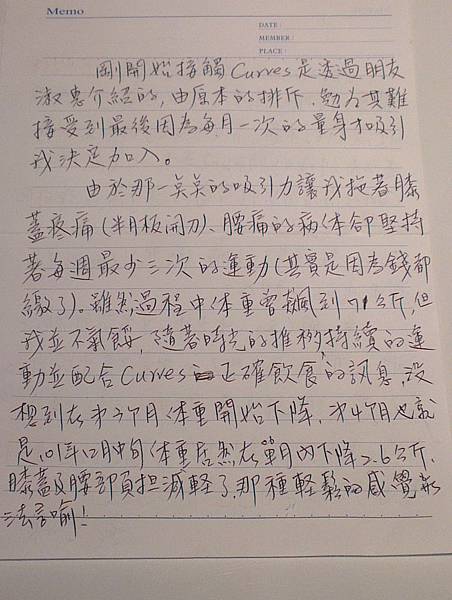 Memo
DATE :
MEMBER :
PLACE :
剛開始接觸Curves是透過朋友
淑惠介紹的,由原本的排斥、勉为其難
接受到最後因為每月一次的量身才吸引
我決定加入。
由於那一點點的吸引力讓我拖著膝
蓋疼痛(半月板開刀)、腰痛的病体卻堅持
著每週最少三次的運動(其實是因為錢都
繳了)。雖然過程中体重曾飆到71公斤,但
我並不氣餒,隨著時光的推移持續的運
動並配合Curves正確飲食的訊息,没
想到在第3个月体重開始下降,第4个月也就
是101年12月中旬体重居然在單月內下降2.6公斤、
膝蓋及腰部負担減輕了,那種輕鬆的感覺無
法言喻!